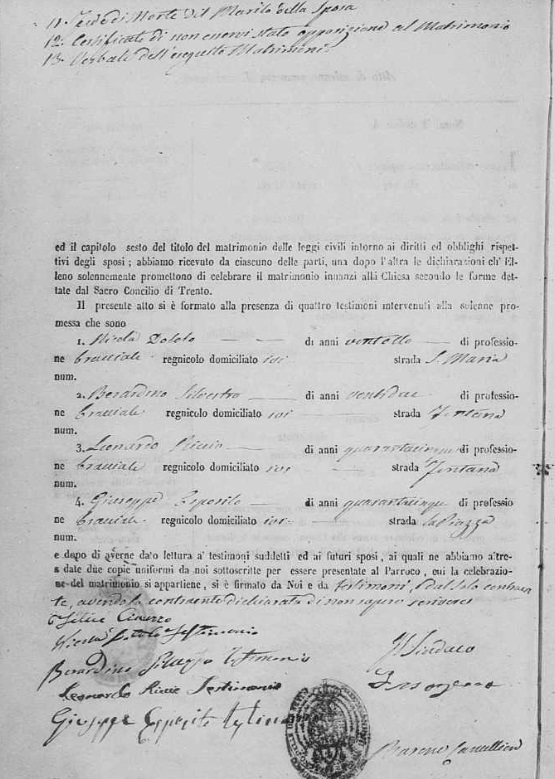 11. Fede di Morte del Marito della Sposa
12. Certificato di non esservi stato opposizione al Matrimonio
13. Verbale dell'
ed il capitolo sesto del titolo del matrimonio delle leggi civili intorno ai diritti ed obblighi rispet-
tivi degli sposi ; abbiamo ricevuto da ciascuno delle parti, una dopo l'altra le dichiarazioni ch' El-
leno solennemente promettono di celebrare il matrimonio innanzi alla Chiesa secondo le forme det-
tate dal Sacro Concilio di Trento.
Il presente atto si è formato alla presenza di quattro testimoni intervenuti alla solenne pro-
messa che sono
1. Nicola di anni ventotto di professio-
ne bracciale regnicolo domiciliato ivi strada S. Maria
num.
2. Berardino Silvestro di anni ventidue di professio-
ne bracciale regnicolo domiciliato ivi strada Fontana
num.
3. Leonardo Riccio di anni quarantacinque di professio-
ne bracciale regnicolo domiciliato ivi strada Fontana
num.
4. Giuseppe Esposito di anni quarantacinque di professio
ne bracciale regnicolo domiciliato ivi strada la Piazza
num.
e dopo di averne dato lettura a' testimoni suddetti ed ai futuri sposi, ai quali ne abbiamo altre-
s date due copie uniformi da noi sottoscritte per essere presentate al Parroco, cui la celebrazio-
ne del matrimonio si appartiene, si è firmato da Noi e da testimoni, e dal solo contraen
te, avendo la contraente dichiarata di non sapere scrivere
Felice
Nicola Testimonio
Berardino Testimonio
Leonardo Riccio Testimonio
Giuseppe Esposito
Il Sindaco
Cancelliere